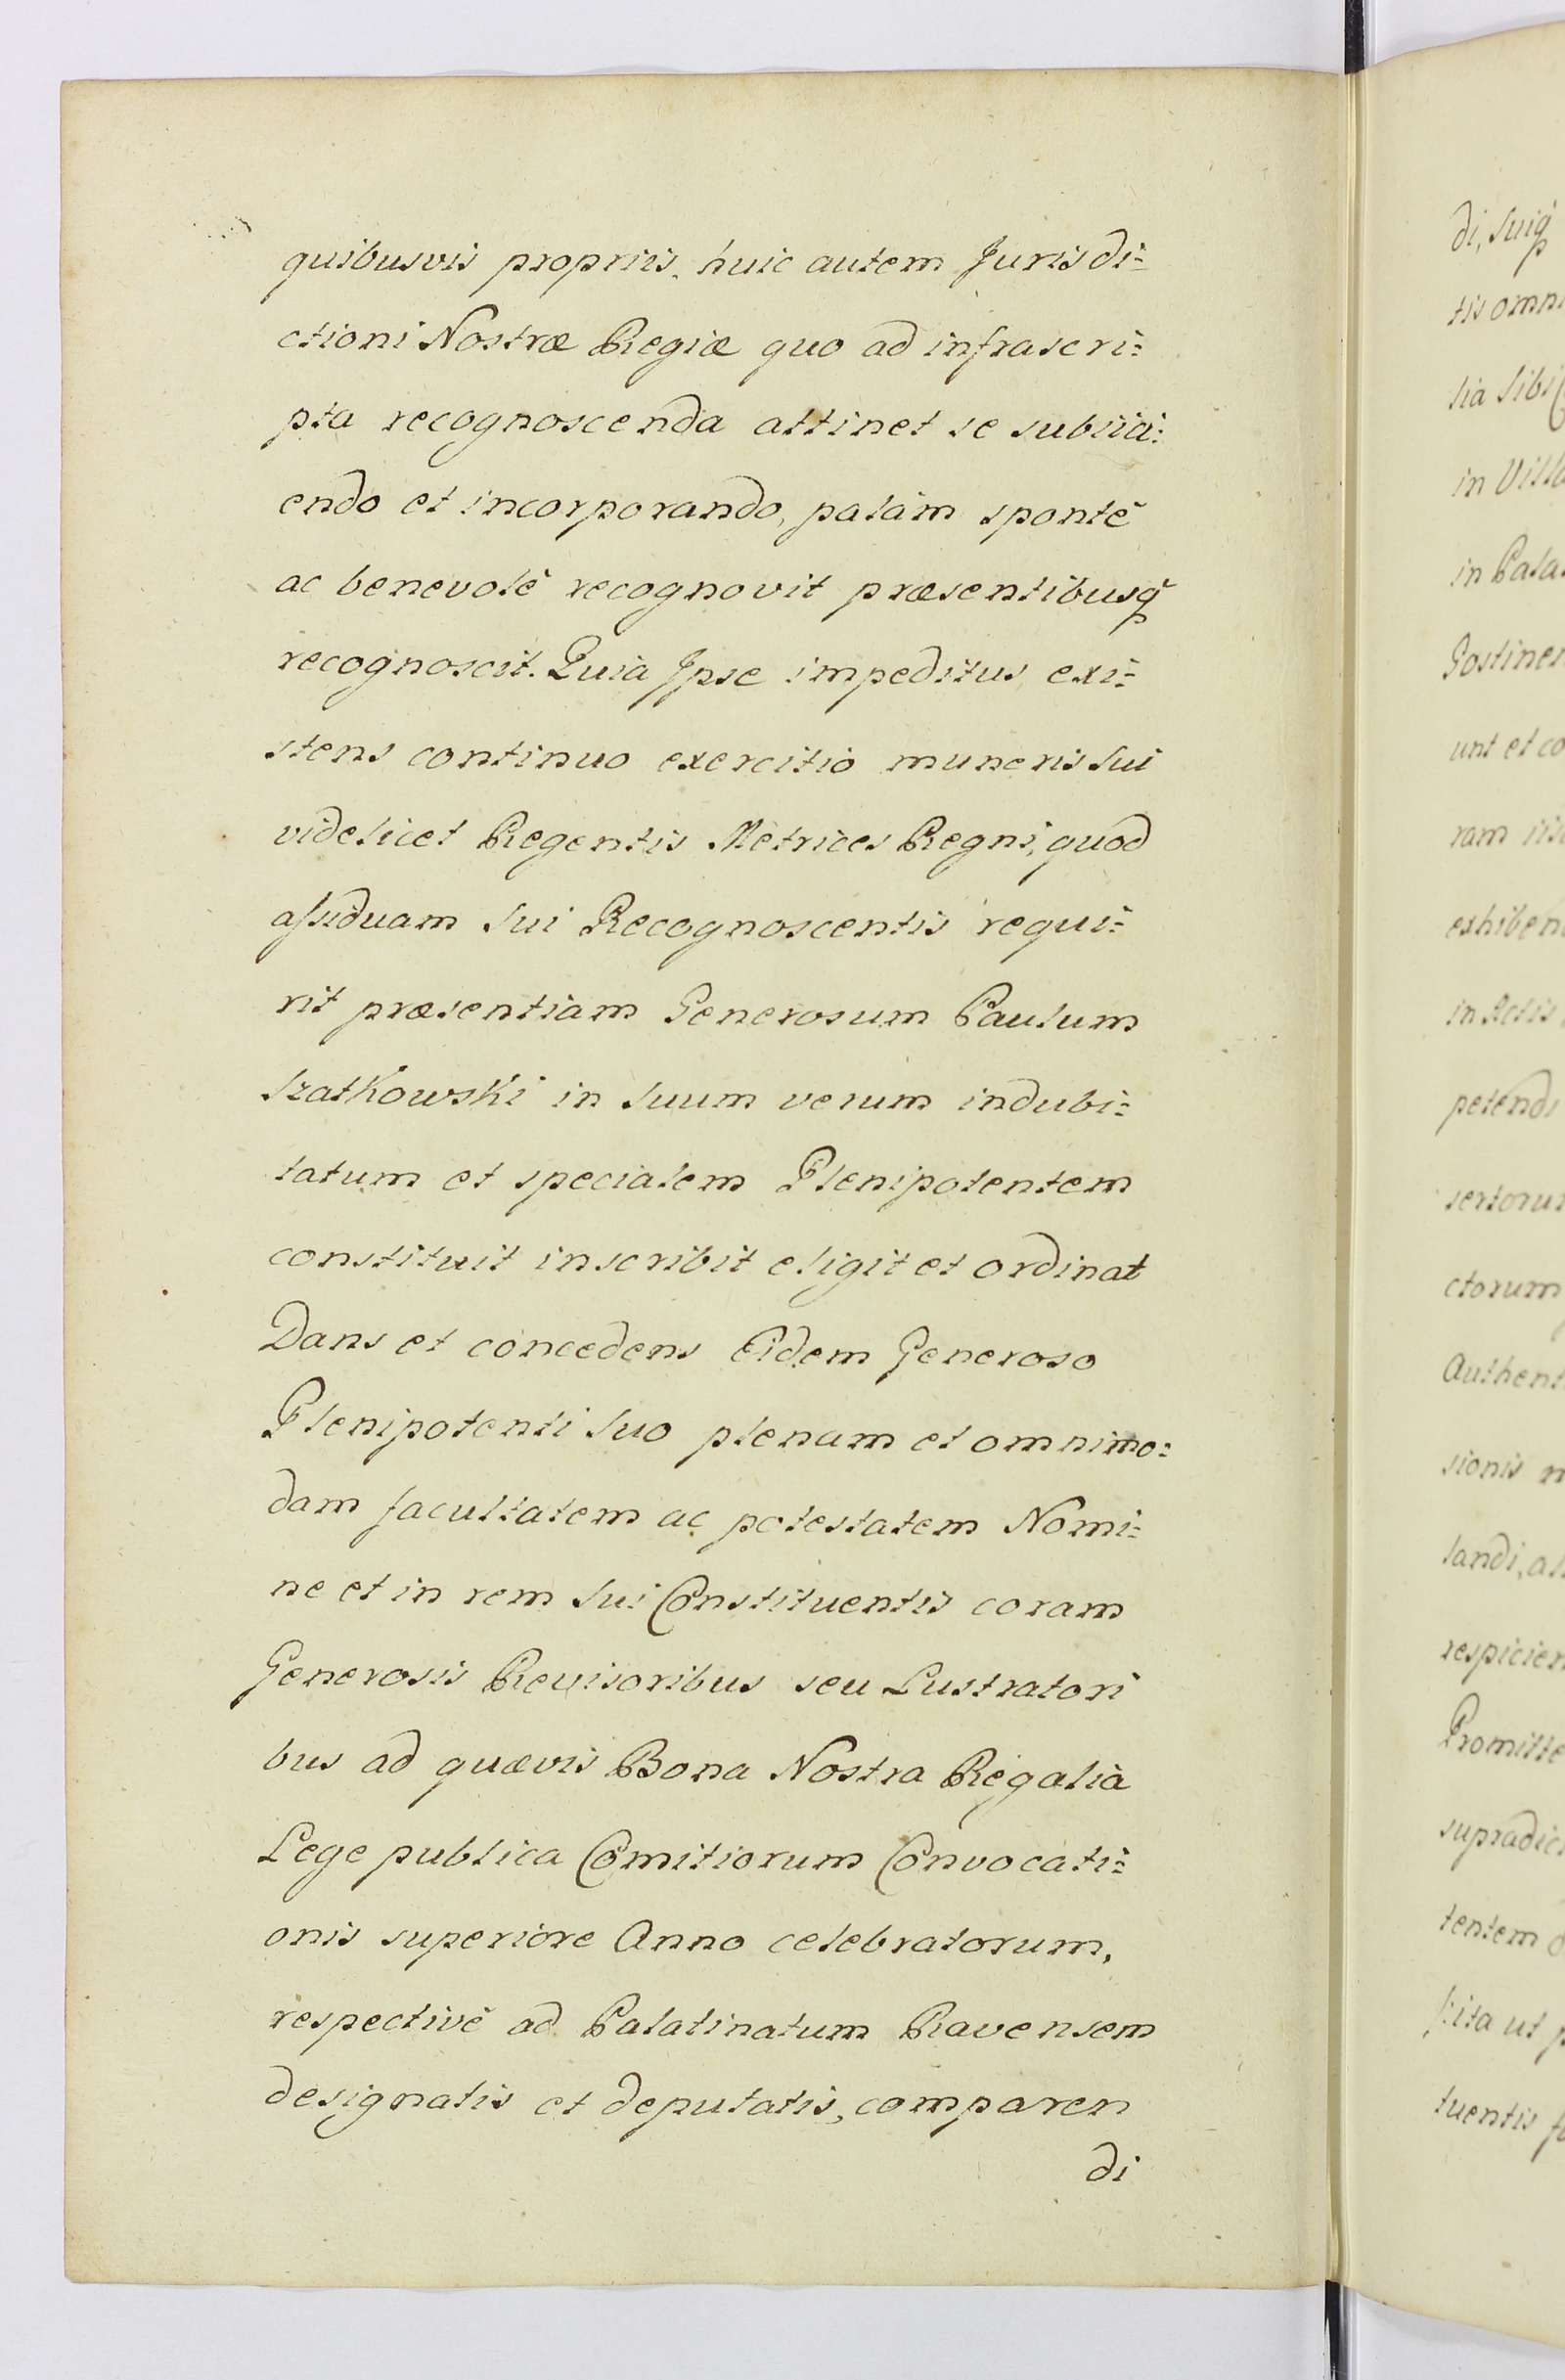 quibusvis propriis, huic autem Jurisdi=
ctioni Nostræ Regiæ quo ad infrascri=
pta recognoscenda attinet se subiici=
endo et incorporando, palàm spontè
ac benevolè recognovit præsentibusq̀
recognoscit. Quia Jpse impeditus exi=
stens continuo exercitio muneris sui
videlicet Regentis Metrices Regni, quod
aſsiduam sui Recognoscentis requi=
rit præsentiam Generosum Paulum
Szatkowski in suum verum indubi=
tatum et specialem Plenipotentem
constituit inscribit eligit et ordinat
Dans et concedens Eidem Generoso
Plenipotenti suo plenam et omnimo=
dam facultatem ac potestatem Nomi=
ne et in rem sui Constituentis coram
Generosis Revisoribus seu Lustratori
bus ad quævis Bona Nostra Regalia
Lege publica Comitiorum Convocati=
onis superiore Anno celebratorum,
respectivè ad Palatinatum Ravensem
designatis et deputatis, comparen
di
di, suiq̀
tis omni
sia sibi
in Villa
in Pala
Gostinen
unt et co
ram iis
exhiben
in Actis
petendi
sertorum
ctorum
Authent
sionis
landi, al
respicien
Promitte
supradic
tentem
ita ut p
tuentis